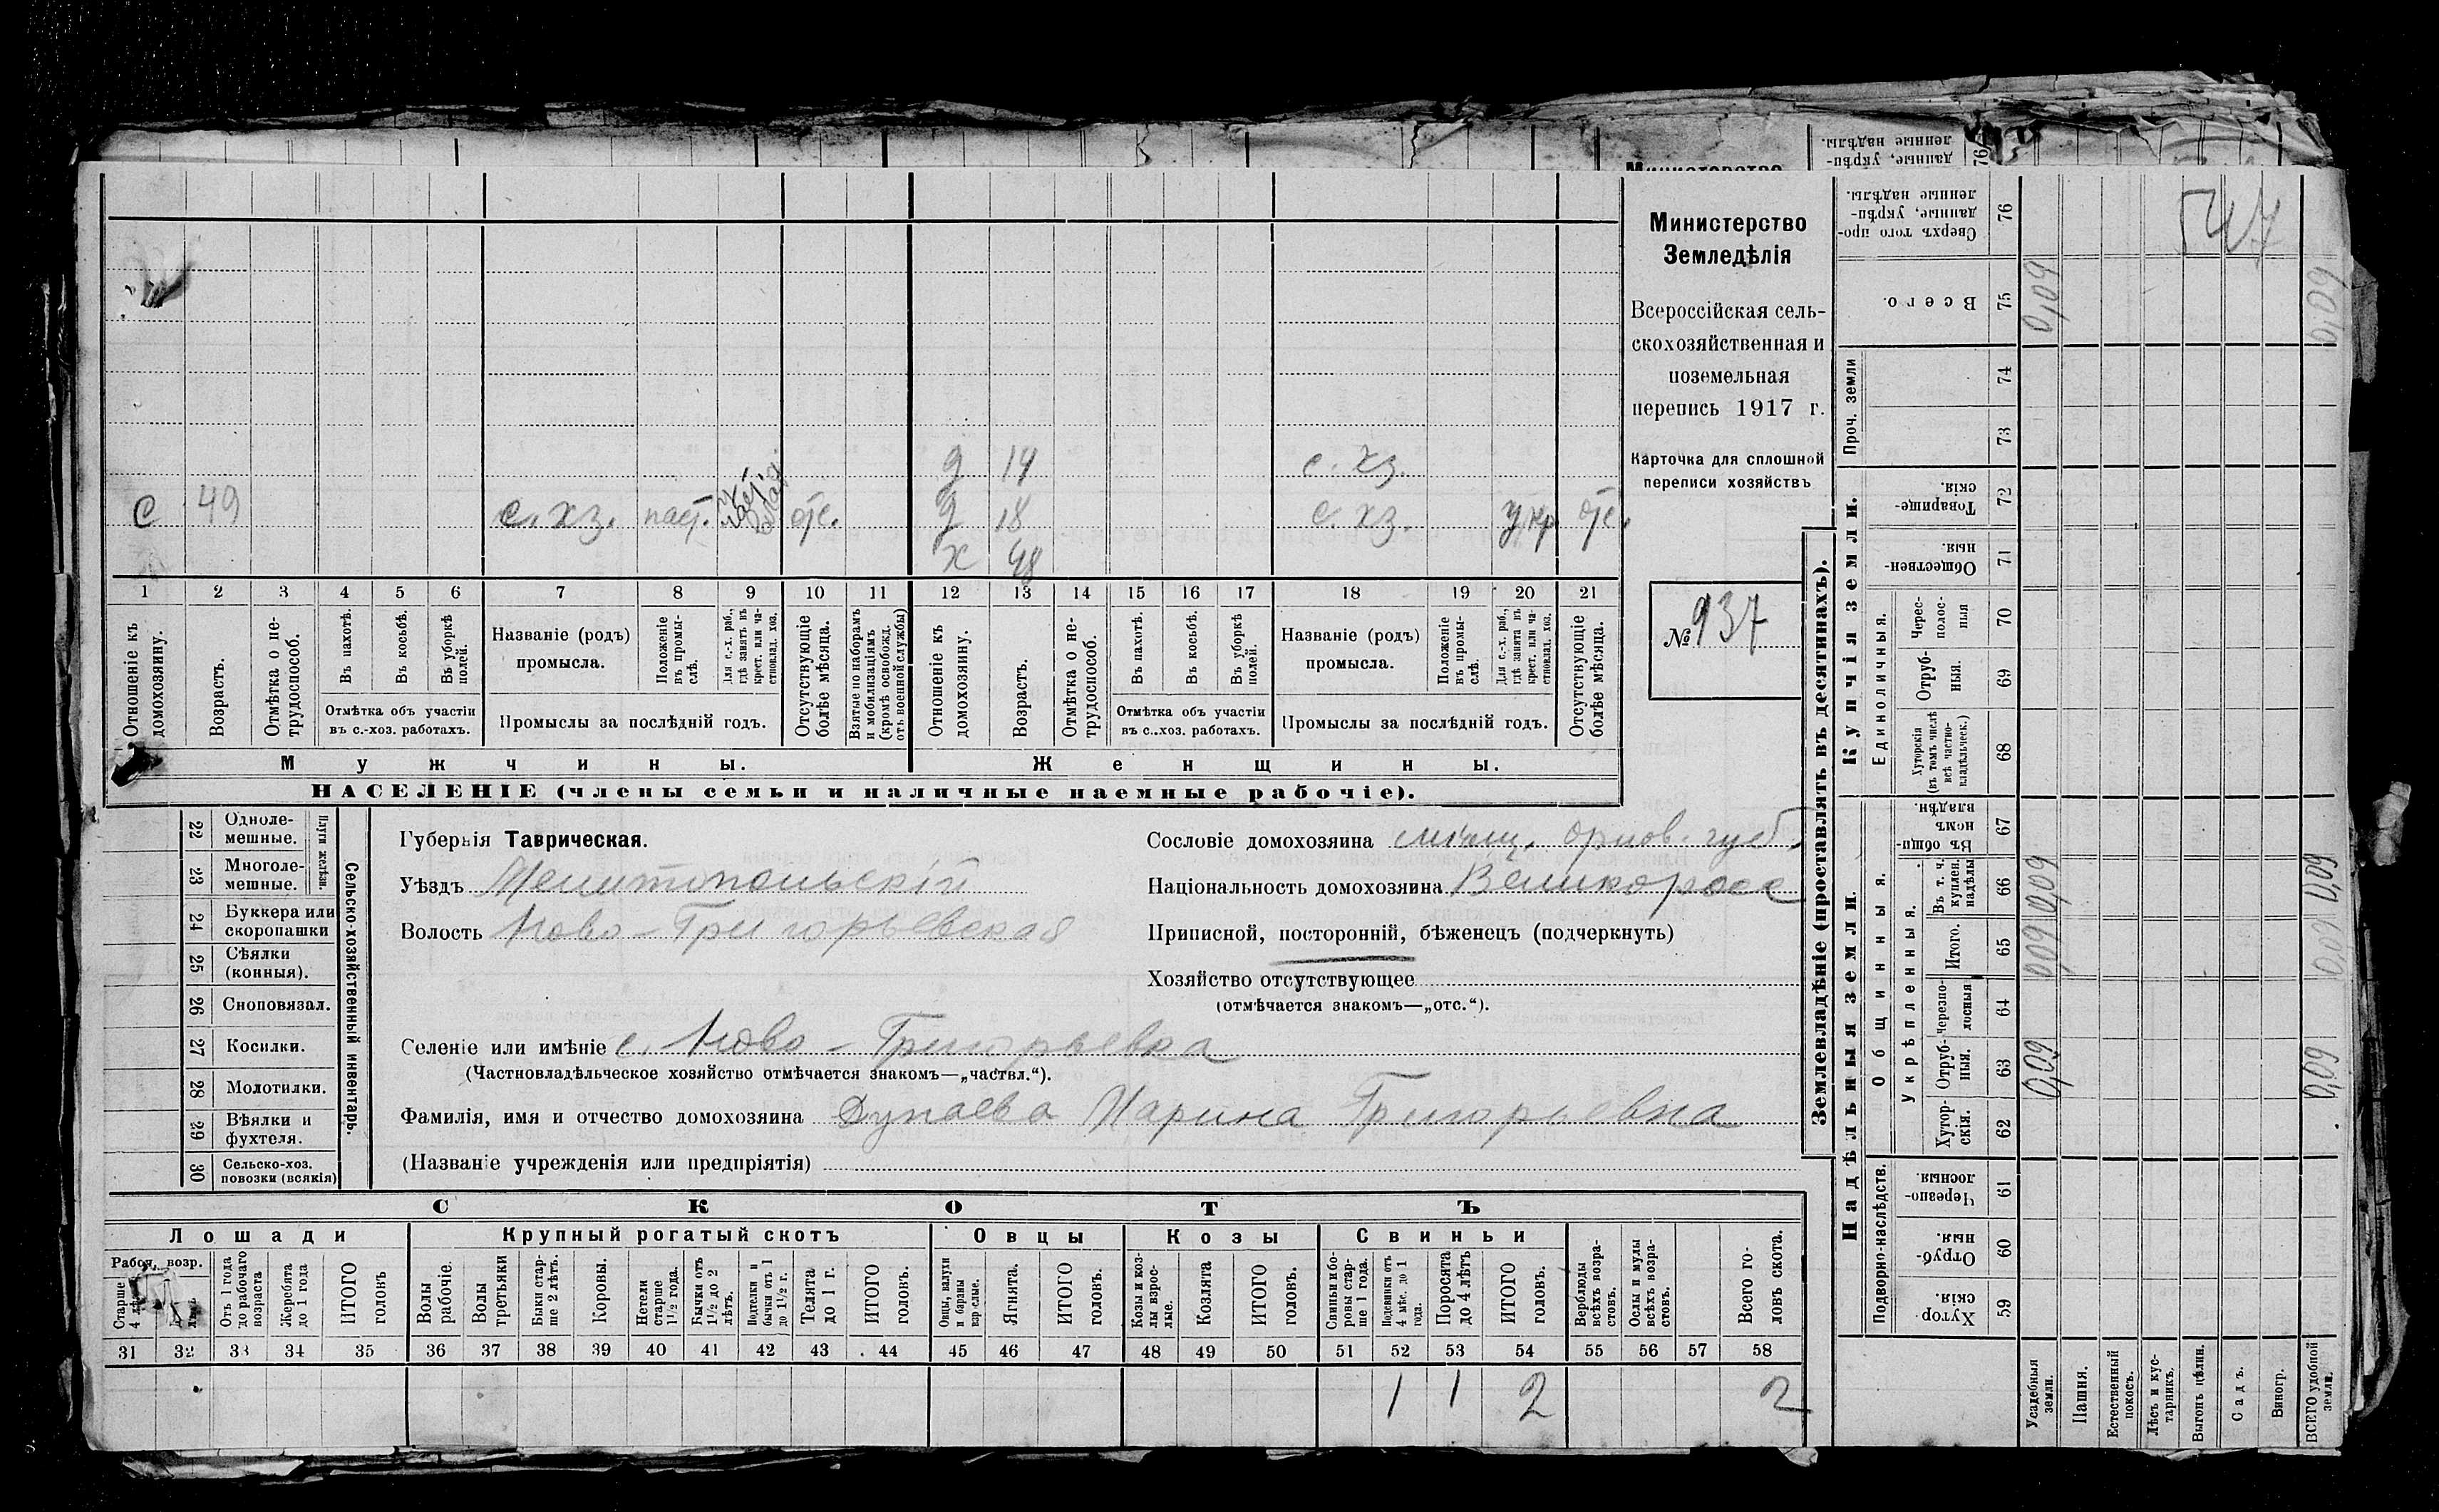 Министерство
Земледѣлія
Всероссійская сель-
скохозяйственная и
поземельная
перепись 1917 г.
Карточка для сплошной
переписи хозяйствъ
№ 937
547
д 14 с. хз.
с 49 с. хз. паст. отс. д 18 с. хз. отс.
х 48
1 2 3 4 5 6 7 8 9 10 11 12 13 14 15 16 17 18 19 20 21
Отношеніе къ домохозяину.
Возрастъ.
Отмѣтка о не-трудоспособ.
Въ пахотѣ.
Въ косьбѣ.
Въ уборкѣ полей.
Отмѣтка объ участіи
въ с.-хоз. работахъ.
Названіе (родъ)
промысла.
Положеніе въ промы-слѣ.
Для с.-х. раб., гдѣ занятъ въ крест. или ча-стновлад. хоз.
Промыслы за послѣдній годъ.
Отсутствующіе болѣе мѣсяца.
Взятые по наборамъ и мобилизаціямъ (кромѣ освобожд. отъ военной службы)
Отношеніе къ домохозяину.
Возрастъ.
Отмѣтка о не-трудоспособ.
Въ пахотѣ.
Въ косьбѣ.
Въ уборкѣ полей.
Отмѣтка объ участіи
въ с.-хоз. работахъ.
Названіе (родъ)
промысла.
Положеніе въ промы-слѣ.
Для с.-х. раб., гдѣ занята въ крест. или ча-стновлад. хоз.
Промыслы за послѣдній годъ.
Отсутствующіе болѣе мѣсяца.
Мужчины. Женщины.
НАСЕЛЕНІЕ (члены семьи и наличные наемные рабочіе).
22 Одноле-мешные.
23 Многоле-мешные.
Плуги желѣзн.
24 Буккера или скоропашки
25 Сѣялки (конныя).
26 Сноповязал.
27 Косилки.
28 Молотилки.
29 Вѣялки и фухтеля.
30 Сельско-хоз. повозки (всякія)
Сельско-хозяйственный инвентарь.
Губернія Таврическая.
Уѣздъ Мелитопольскій
Волость Ново-Григорьевская
Селеніе или имѣніе с. Ново-Григорьевка
(Частновладѣльческое хозяйство отмѣчается знакомъ—„частвл.“).
Фамилія, имя и отчество домохозяина Григорьевна
(Названіе учрежденія или предпріятія)
Сословіе домохозяина мѣщ. Орлов. губ.
Національность домохозяина Великоросс
Приписной, посторонній, бѣженецъ (подчеркнуть)
Хозяйство отсутствующее
(отмѣчается знакомъ—„отс.“).
СКОТЪ
Лошади Крупный рогатый скотъ Овцы Козы Свиньи
Рабоч. возр.
Старше 4 лѣ
Отъ 1 года до рабочаго возраста
Жеребята до 1 года
ИТОГО головъ
Волы рабочіе.
Волы третьяки
Быки стар-ше 2 лѣтъ.
Коровы.
Нетели старше 1½ года.
Бычки отъ 1½ до 2 лѣтъ.
Подтелки и бычки отъ 1 до 1½ г.
Телята до 1 г.
ИТОГО головъ.
Овцы, валухи и бараны взрослые.
Ягнята.
ИТОГО головъ.
Козы и коз-лы взрос-лые.
Козлята
ИТОГО головъ.
Свиньи и бо-ровы стар-ше 1 года.
Подсвинки отъ 4 мѣс. до 1 года.
Поросята до 4 лѣтъ
ИТОГО головъ.
Верблюды всѣхъ возра-стовъ.
Ослы и мулы всѣхъ возра-стовъ.
Всего го-ловъ скота.
31 32 33 34 35 36 37 38 39 40 41 42 43 44 45 46 47 48 49 50 51 52 53 54 55 56 57 58
1 1 2 2
Землевладѣніе (проставлять въ десятинахъ).
Надѣльныя земли. Купчія земли. Проч. земли
Подворно-наслѣдств.
Общинныя.
Укрѣпленныя.
Единоличныя.
Хутор-скія. 59
Отруб-ныя. 60
Черезпо-лосныя 61
Хутор-скія. 62
Отруб-ныя. 63
Черезпо-лосныя 64
Итого. 65
Въ т. ч. куплен. надѣлы 66
Въ общи-номъ владѣн. 67
Хуторскія (въ томъ числѣ всѣ частно-владѣльческ.) 68
Отруб-ныя. 69
Черес-полос-ныя 70
Обществен-ныя. 71
Товарище-скія. 72
73
74
Всего. 75
Сверхъ того про-данные, укрѣп-ленные надѣлы. 76
Усадебныя земли. 0,09 0,09 0,09 0,09
Пашня.
Естественный покосъ.
Лѣсъ и кус-тарникъ.
Выгонъ цѣлин.
Садъ.
Виногр.
ВСЕГО удобной земли. 0,09 0,09 0,09 0,09